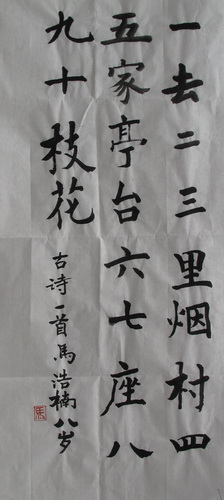 一去二三里烟村四
五家亭台六七座八
九十枝花
古诗一首馬浩楠八岁